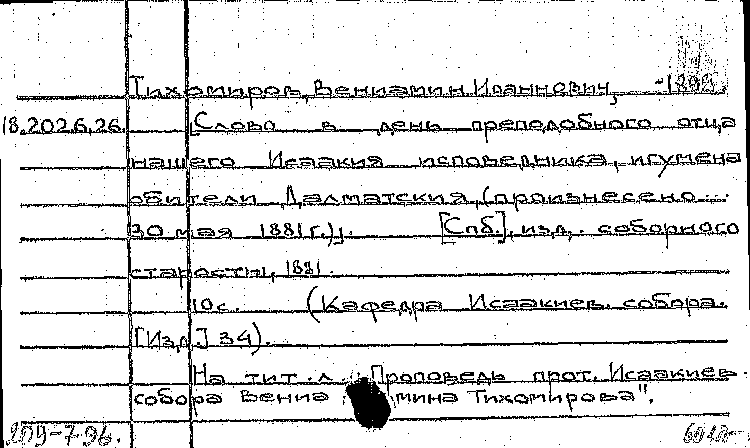 Тихомиров, Вениамин Иоаннович, -1893.
18.202.6.26. [Слово в день преподобного отца
нашего Исаакия исповедника, игумена
обители Далматския, (произнесено...
30 мая 1881 г.)]. [Спб.], изд. соборного
старосты, 1881.
10 с. (Кафедра Исаакиев. собора.
[Изд.] 34).
На тит. л.: "Проповедь прот. Исаакиев.
собора Вениамина Тихомирова".
209-7-96.